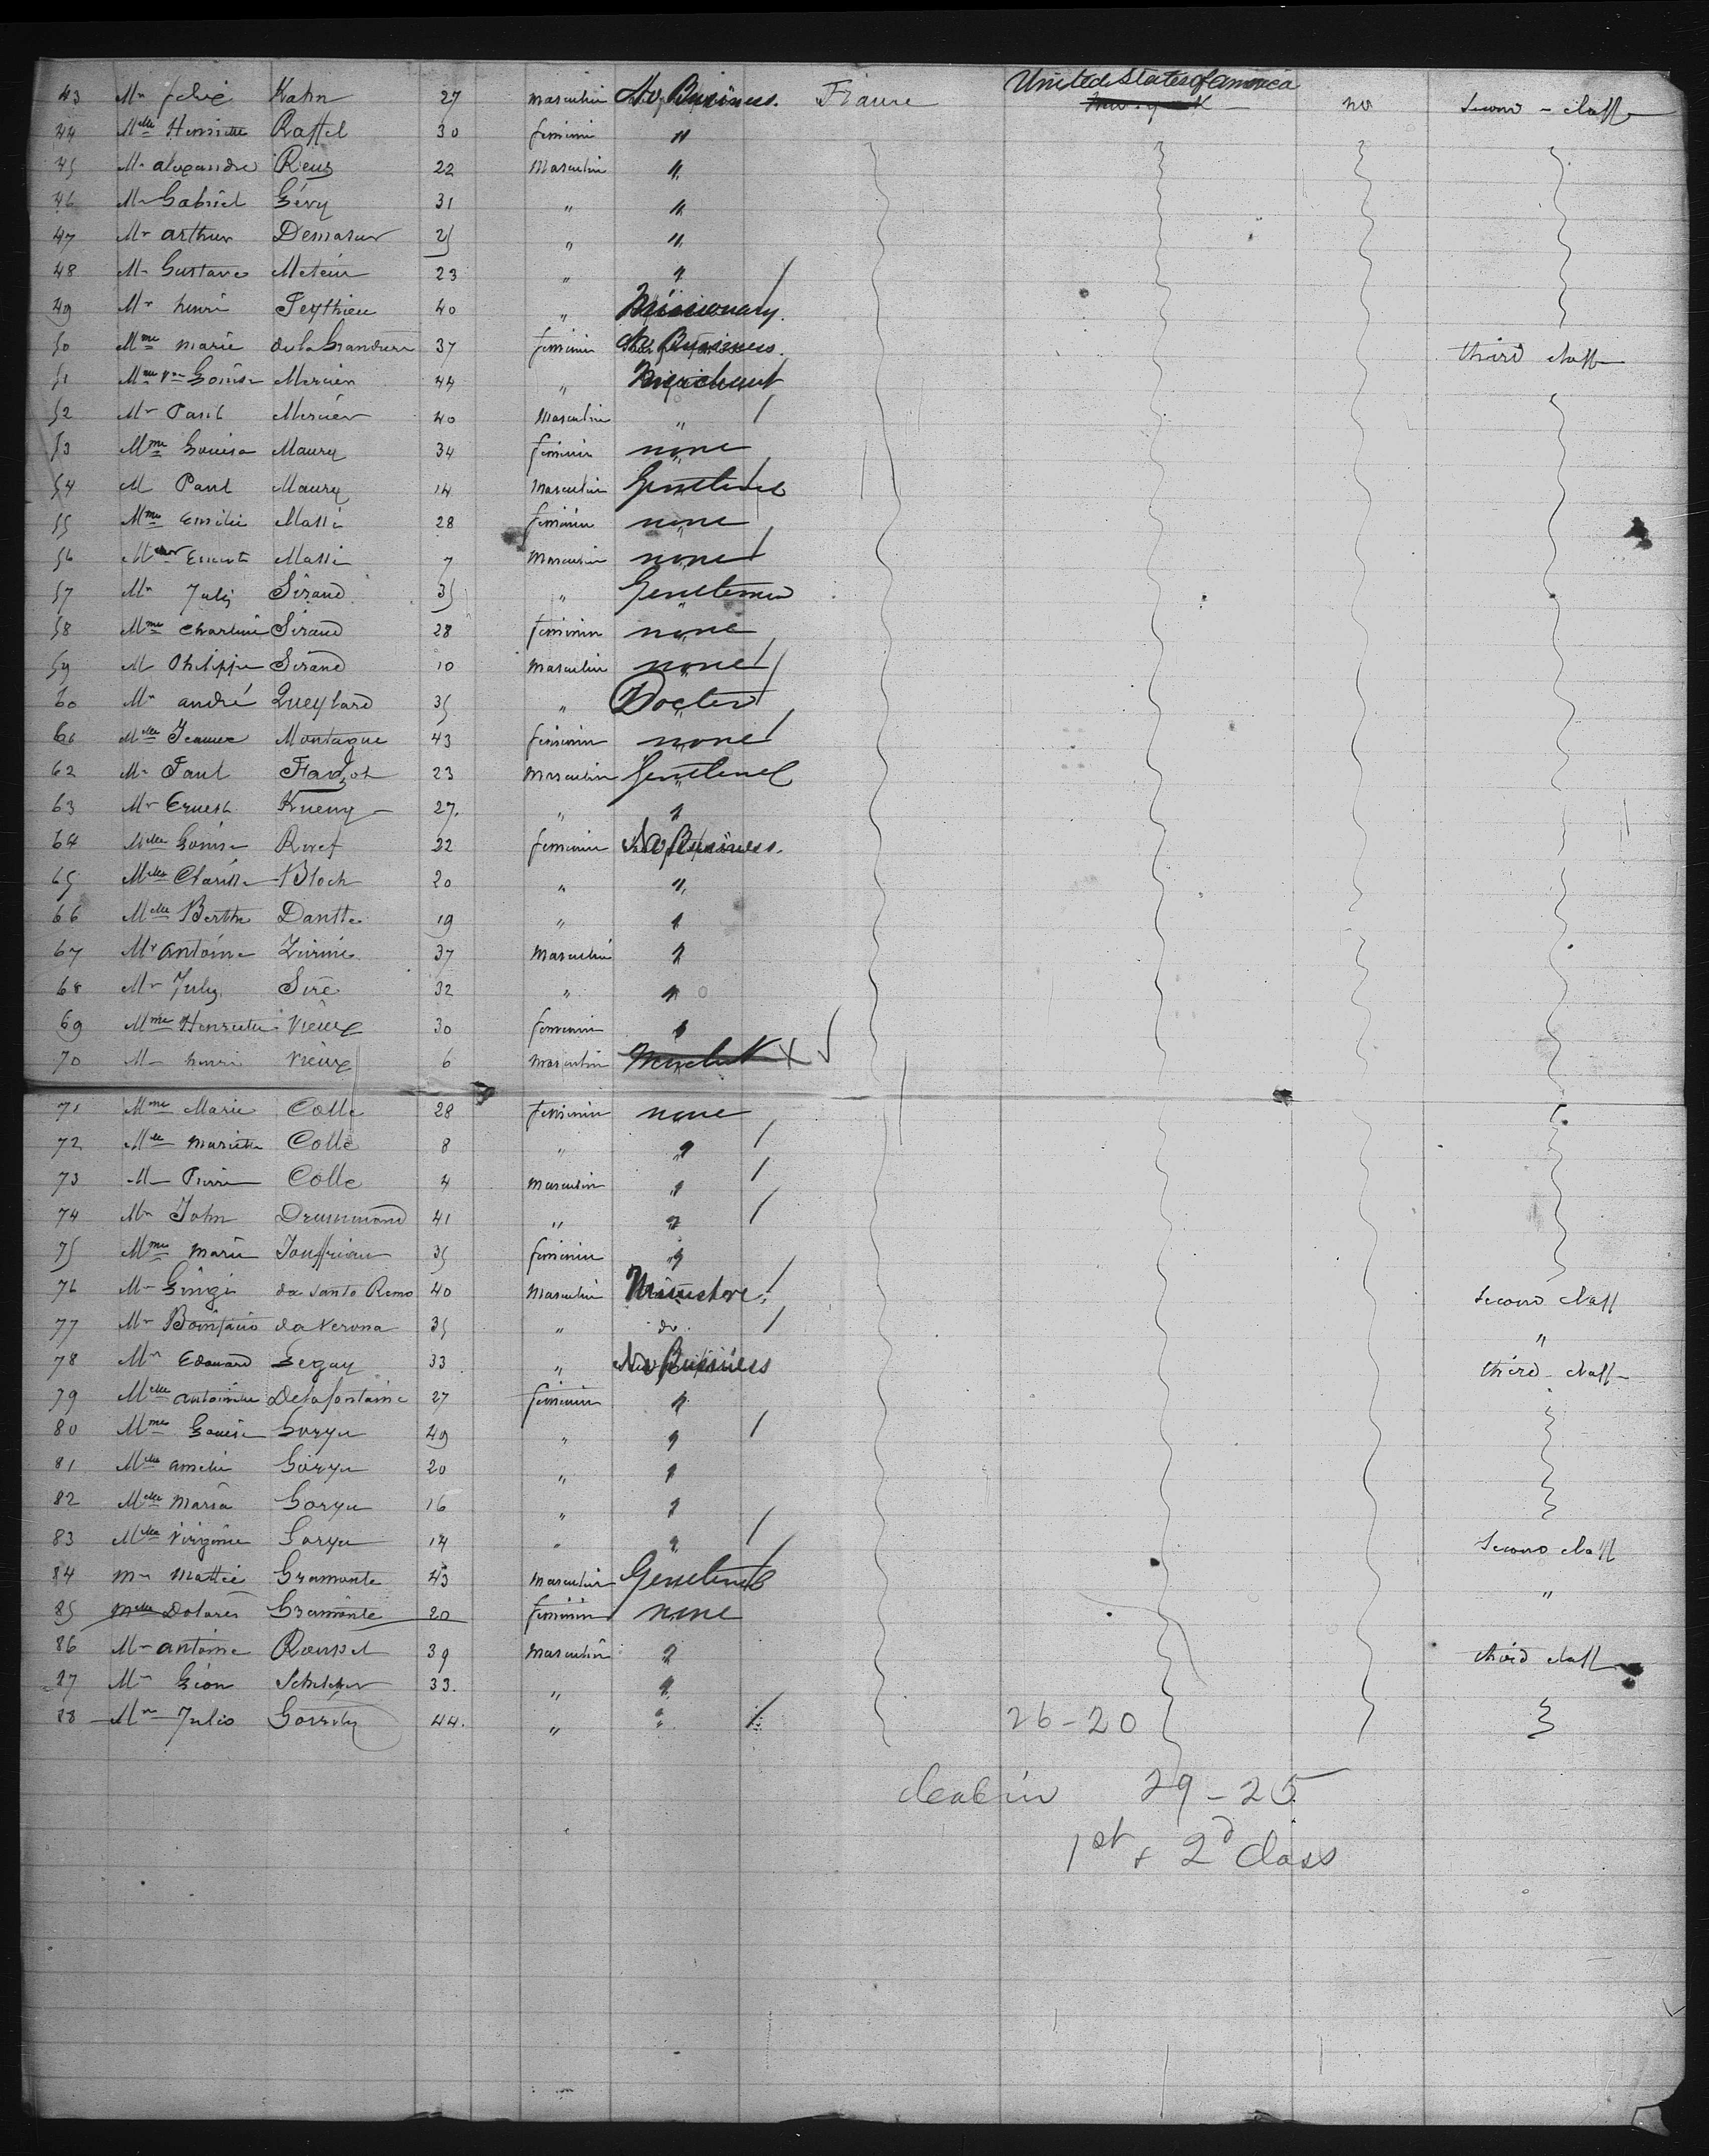 United States of America
43 Mr Felix Kahn 27 masculin No Business. France New York no Second - class
44 Melle Henriette Raffel 30 feminin "
45 Mr alexandre Reus 22 Masculin "
46 Mr Gabriel Lévy 31 " "
47 Mr arthur Demasur 25 " "
48 Mr Gustave 23 " "
49 Mr henri Peythieu 40 " Missionary.
50 Mme marie de la Grandiere 37 feminin No Business. third class
51 Mme Vve Louise Mercier 44 " Merchant
52 Mr Paul Mercier 40 Masculin "
53 Mme Louisa Maury 34 feminin none
54 M Paul Maury 14 masculin
55 Mme Emilie Massé 28 feminin none
56 Ernest Massé 7 Masculin none
57 Mr July Siraud 35 " Gentleman
58 Mme Siraud 28 feminin none
59 M Philippe Siraud 10 masculin none
60 Mr andré Queylard 35 " Doctor
61 Melle Jeanne Montague 43 feminin none
62 Mr Paul Fargot 23 Masculin
63 Mr Ernest Kueny 27. " "
64 Melle Louise 22 feminin No Business.
65 Melle Clarisse Bloch 20 " "
66 Melle Berthe 19 " "
67 Mr antoine 37 Masculin "
68 Mr July Siré 32 " "
69 Mme Henriette Vieux 30 feminin "
70 M henri Vieux 6 masculin X
71 Mme Marie Colle 28 feminin none
72 Mlle mariette Colle 8 " "
73 M Pierre Colle 4 masculin "
74 Mr John Drummond 41 " "
75 Mme Marie 35 feminin "
76 Mr Luigi da Santo Remo 40 Masculin Second Class
77 Mr Bonifacio da Verona 35 " do. "
78 Mr Edouard Legay 33 " No Business third - class
79 Melle antoinette Delafontaine 27 feminin "
80 Mme Louise 49 " "
81 Melle amelie 20 " "
82 Melle Maria 16 " "
83 Melle Virginie 14 " " Second class
84 Mr Mattie Gramonte 43 masculin "
85 Melle Dolores Gramonte 20 feminin none
86 Mr antoine Roussel 39 masculin " third class
87 Mr Léon 33. " "
88 Mr Julio 44. " "
26-20
Cabin 29-25
1st & 2d Class